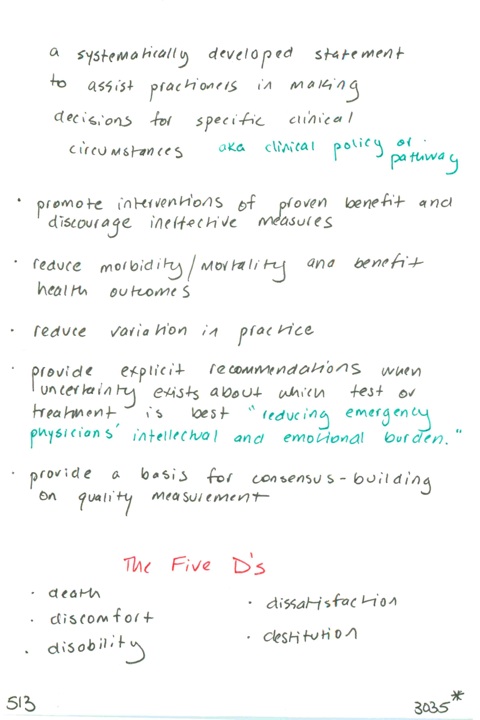 a systematically developed statement
to assist practioners in making
decisions for specific clinical
circumstances aka clinical policy or pathway
• promote interventions of proven benefit and
discourage ineffective measures
• reduce morbidity/mortality and benefit
health outcomes
• reduce variation in practice
• provide explicit recommendations when
uncertainty exists about which test or
treatment is best "reducing emergency
physicians' intellectual and emotional burden."
• provide a basis for consensus-building
on quality measurement
The Five D's
• death
• discomfort
• disability
• dissatisfaction
• destitution
513
3035*